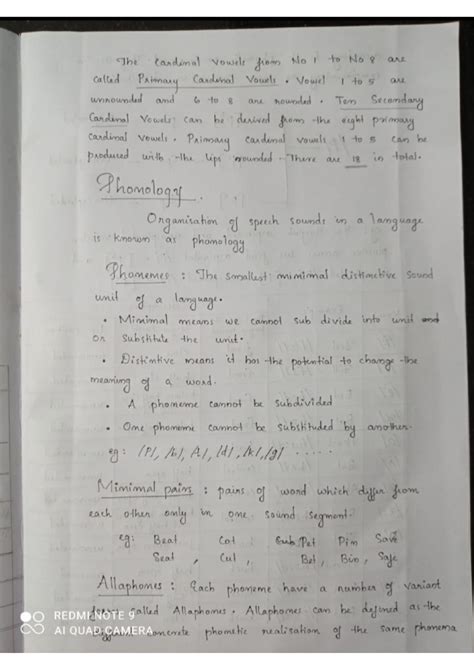 The Cardinal Vowels from No 1 to No 8 are
called Primary Cardinal Vowels. Vowel 1 to 5 are
unrounded and 6 to 8 are rounded. Ten Secondary
Cardinal Vowels can be derived from the eight primary
cardinal vowels. Primary cardinal vowels 1 to 5 can be
produced with the lips rounded. There are 18 in total.
Phonology.
Organisation of speech sounds in a language
is known as phonology
Phonemes : The smallest minimal distinctive sound
unit of a language.
• Minimal means we cannot sub divide into unit
or substitute the unit.
• Distinktive means it has the potential to change the
meaning of a word.
• A phoneme cannot be subdivided
• One phoneme cannot be substituded by another.
eg: /p/, /b/, /t/, /d/, /k/, /g/ .....
Minimal pairs : pairs of word which differ from
each other only in one sound segment.
eg: Beat Cot Pet Pin Save
Seat , Cut , Bet , Bin , Safe
Allaphones : Each phoneme have a number of variant
called Allaphones. Allaphones can be defined as the
concrete phonetic realisation of the same phonema
REDMI NOTE 9
AI QUAD CAMERA